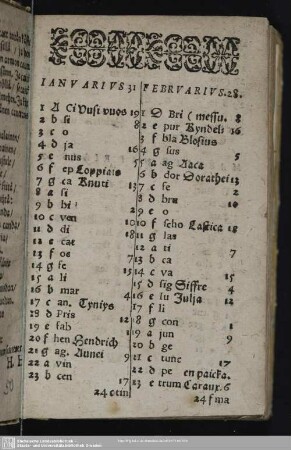 IANVARIVS 31
1 A Ci Vusi vuos 19
2 b si 8
3 c o
4 d ja 16
5 e nus 5
6 f ep Loppiais
7 g ca Knuti 13
8 a si 2
9 b hi
10 c ven 10
11 d di
12 e cat 18
13 f os 7
14 g fe
15 a li 15
16 b mar 4
17 c an. Tyniys
18 d Pris 12
19 e fab 1
20 f hen Hendrich
21 g ag. Aunei 9
22 a vin
23 b cen 17
24 etim
FEBRVARIVS. 28.
1 D Bri ( messu. 8
2 e pur Kyndeli 16
3 f bla Blosius
4 g sus 5
5 a ag Aaca
6 b dor Dorathei 13
7 c fe 2
8 d bru 10
9 e o
10 f scho
11 g las
12 a ti 7
13 b ca
14 c va 15
15 d sig Siffre 4
16 e iu Julja 12
17 f li
18 g con 1
19 a jun 9
20 b ge
21 c tunc 17
22 d pe en paicka.
23 e trum Caraux. 6
24 f ma